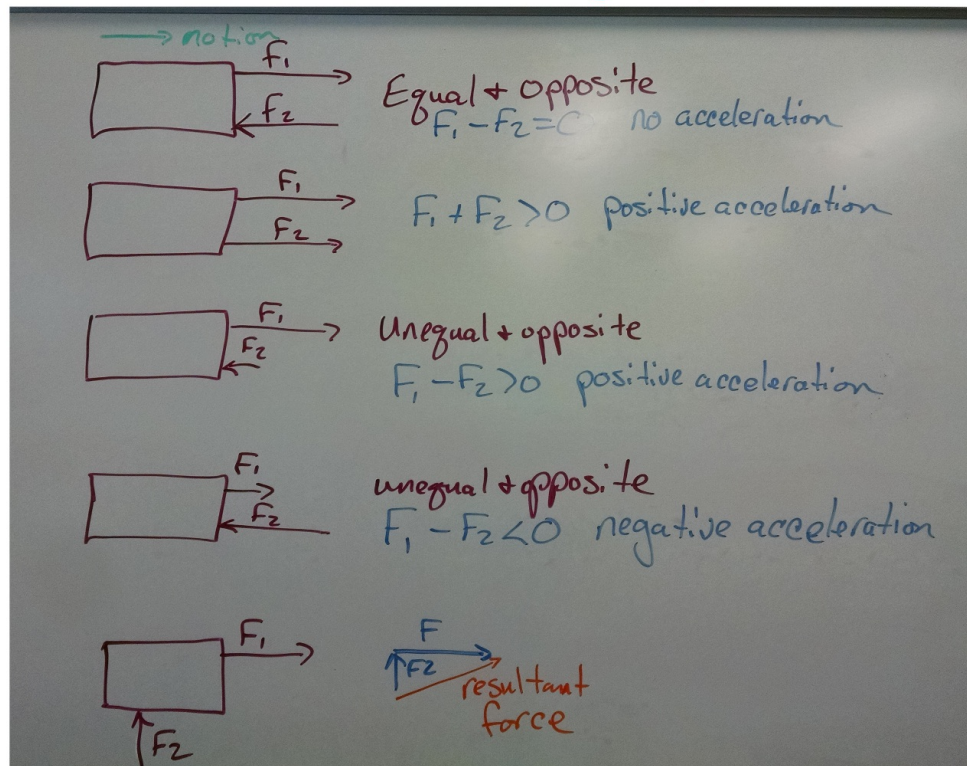 motion
F1
F2
Equal + opposite
F1 - F2 = 0 no acceleration
F1
F2
F1 + F2 > 0 positive acceleration
F1
F2
Unequal + opposite
F1 - F2 > 0 positive acceleration
F1
F2
unequal + opposite
F1 - F2 < 0 negative acceleration
F1
F2
F
F2
resultant
force